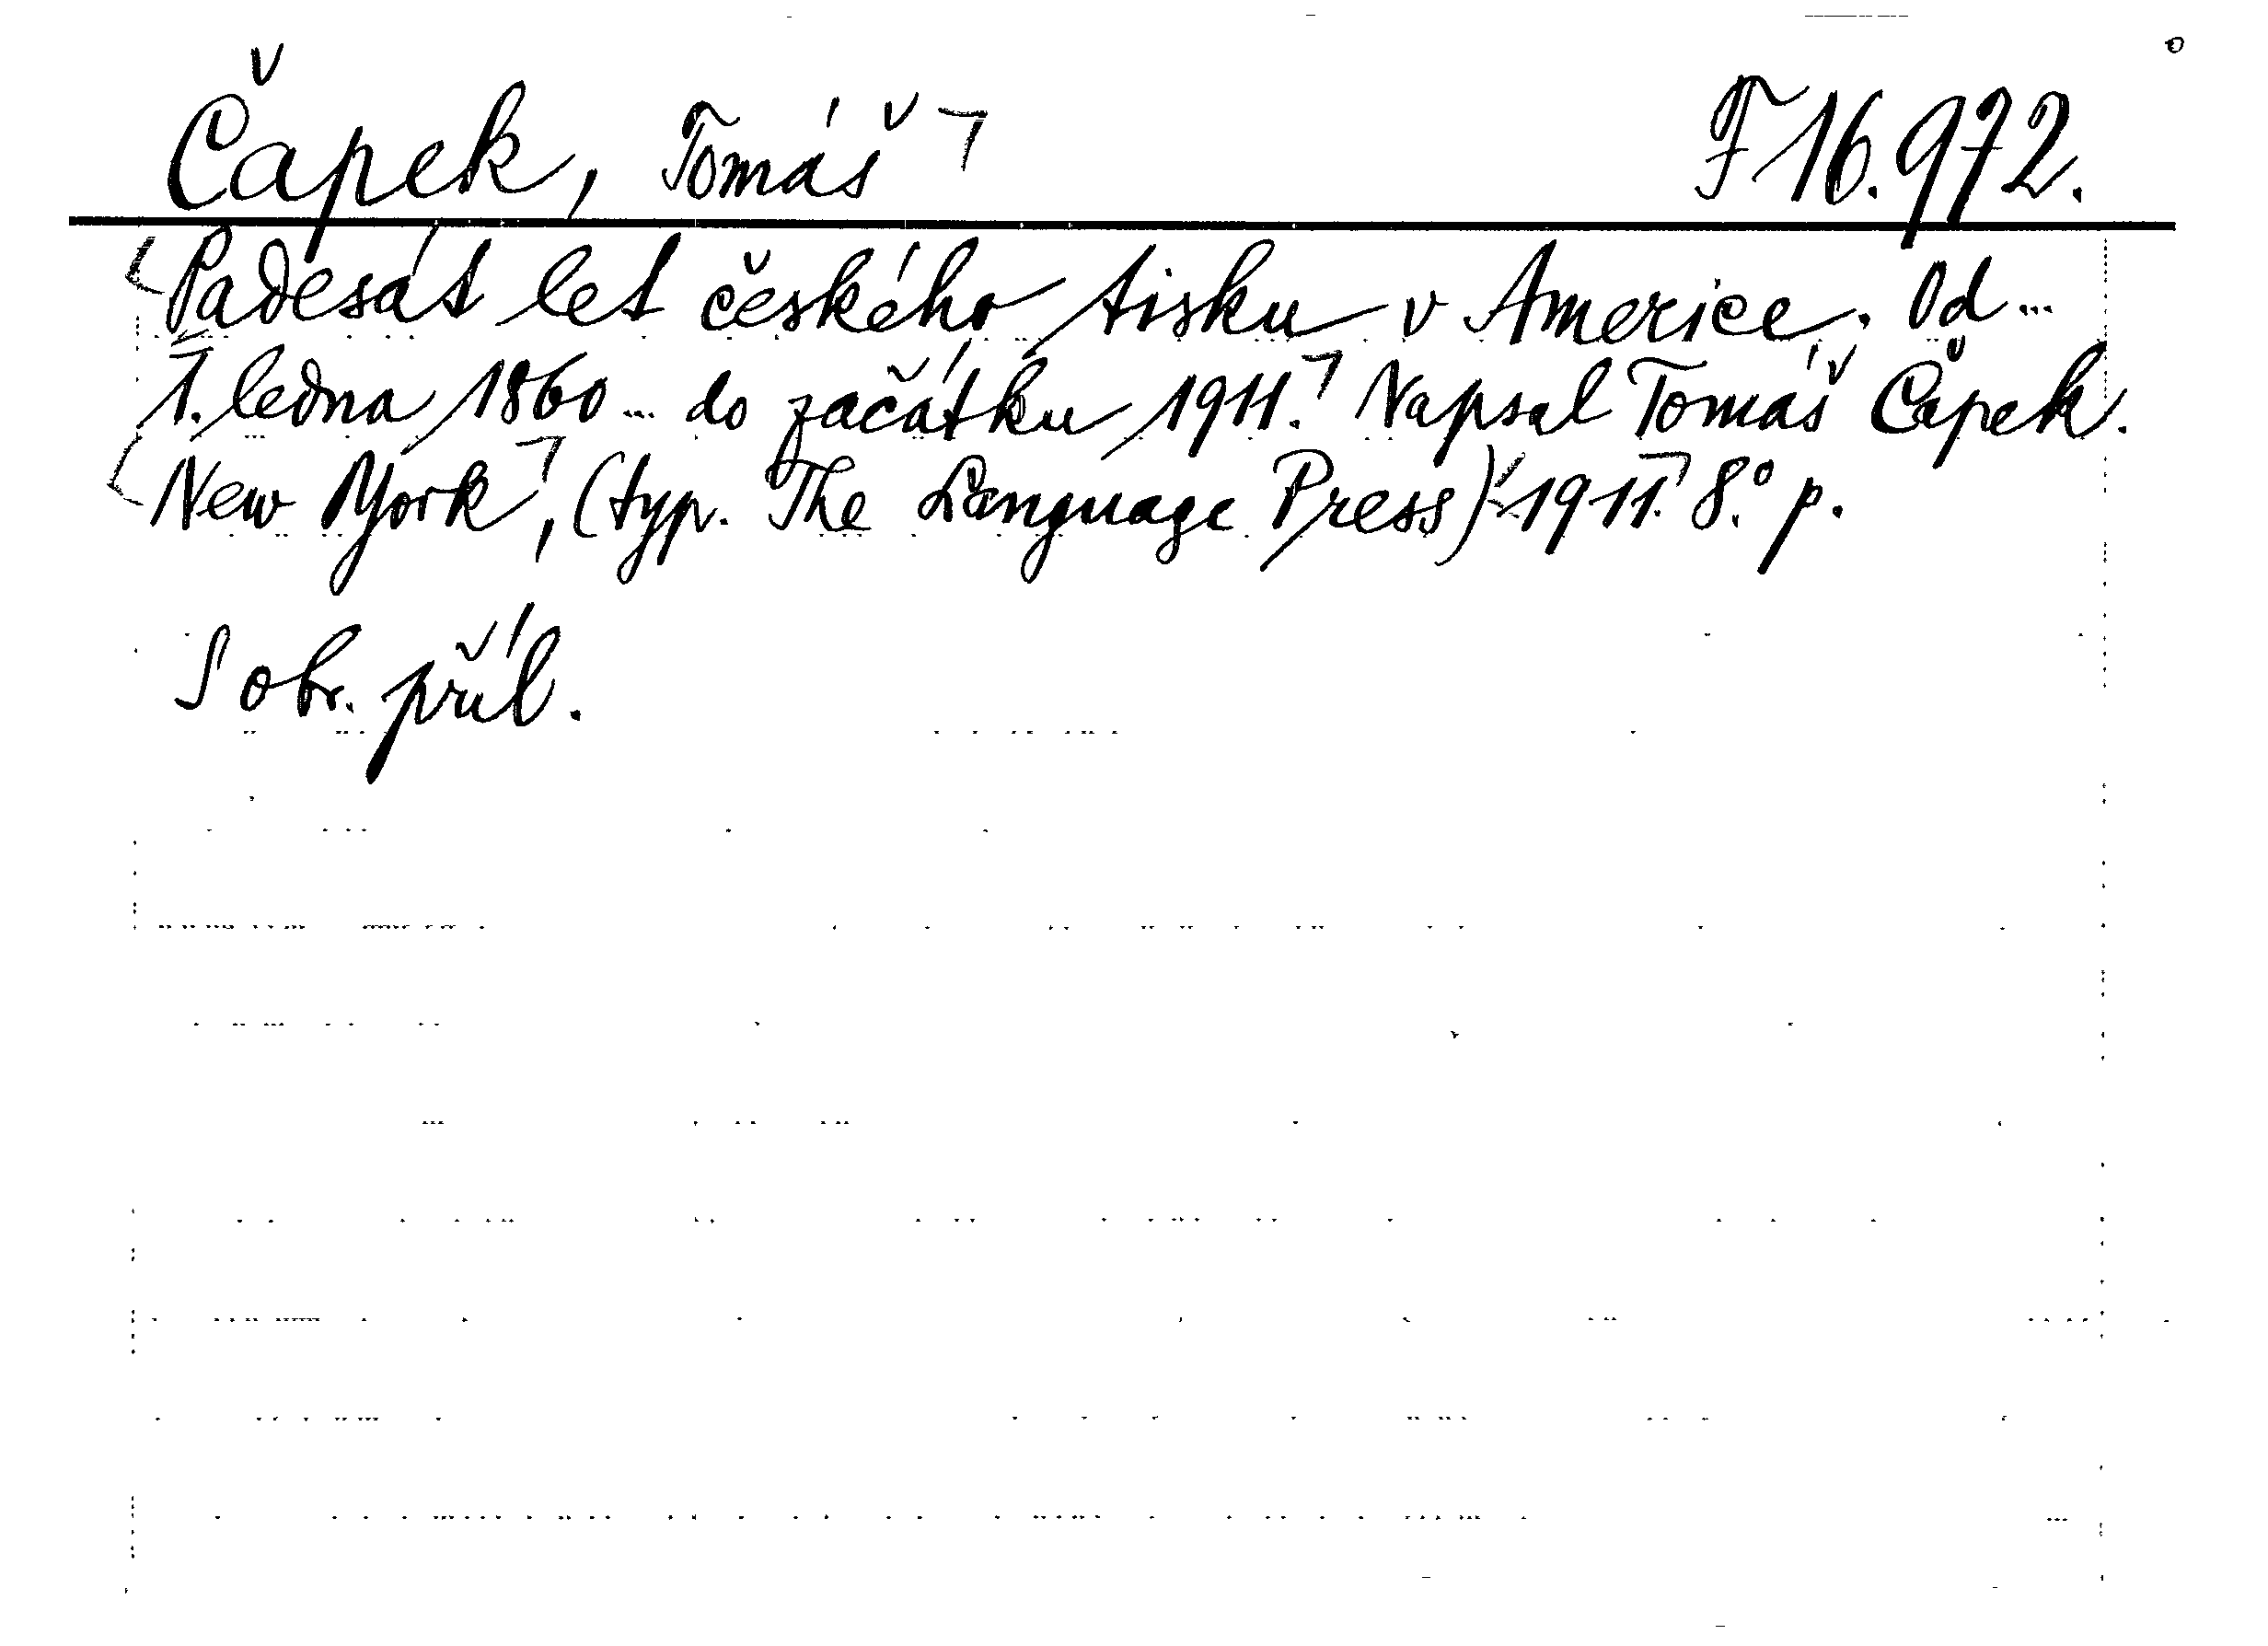 Čapek, Tomáš F 16.972.
Padesát let českého tisku v Americe. Od...
1. ledna 1860... do začátku 1911. Napsal Tomáš Čapek.
New York, (typ. The Language Press) 1911. 8.° p.
S obr. příl.